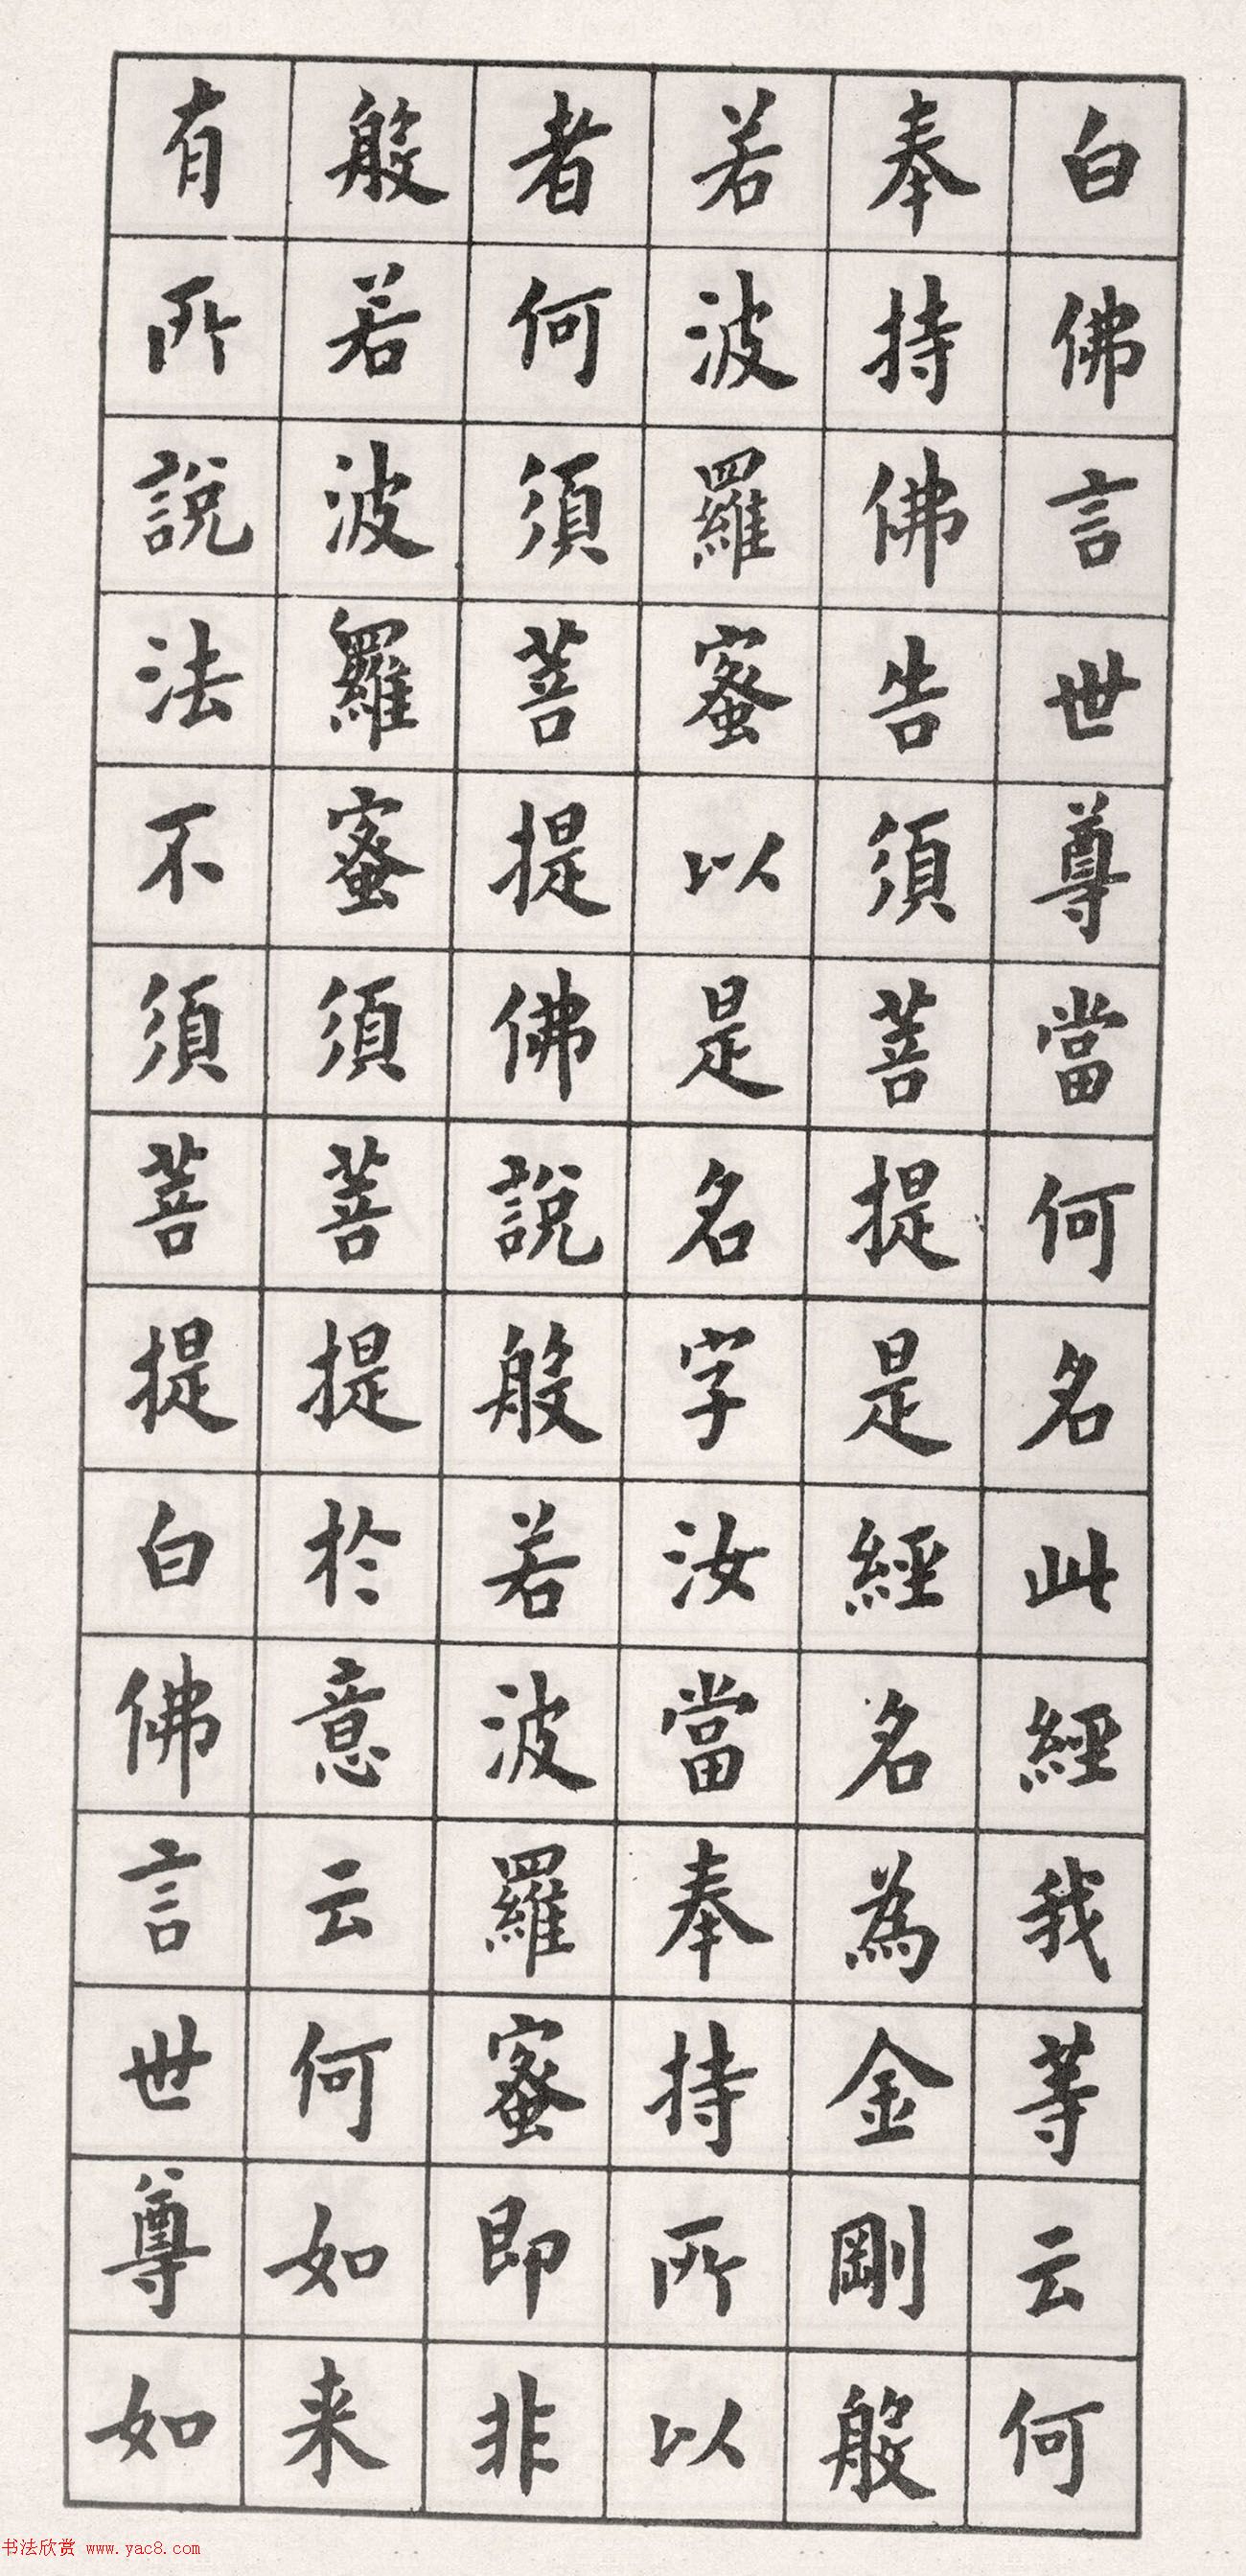 白佛言世尊當何名此經我等云何
奉持佛告須菩提是經名為金剛般
若波羅蜜以是名字汝當奉持所以
者何須菩提佛說般若波羅蜜即非
般若波羅蜜須菩提於意云何如来
有所說法不須菩提白佛言世尊如
书法欣赏 www.yac8.com